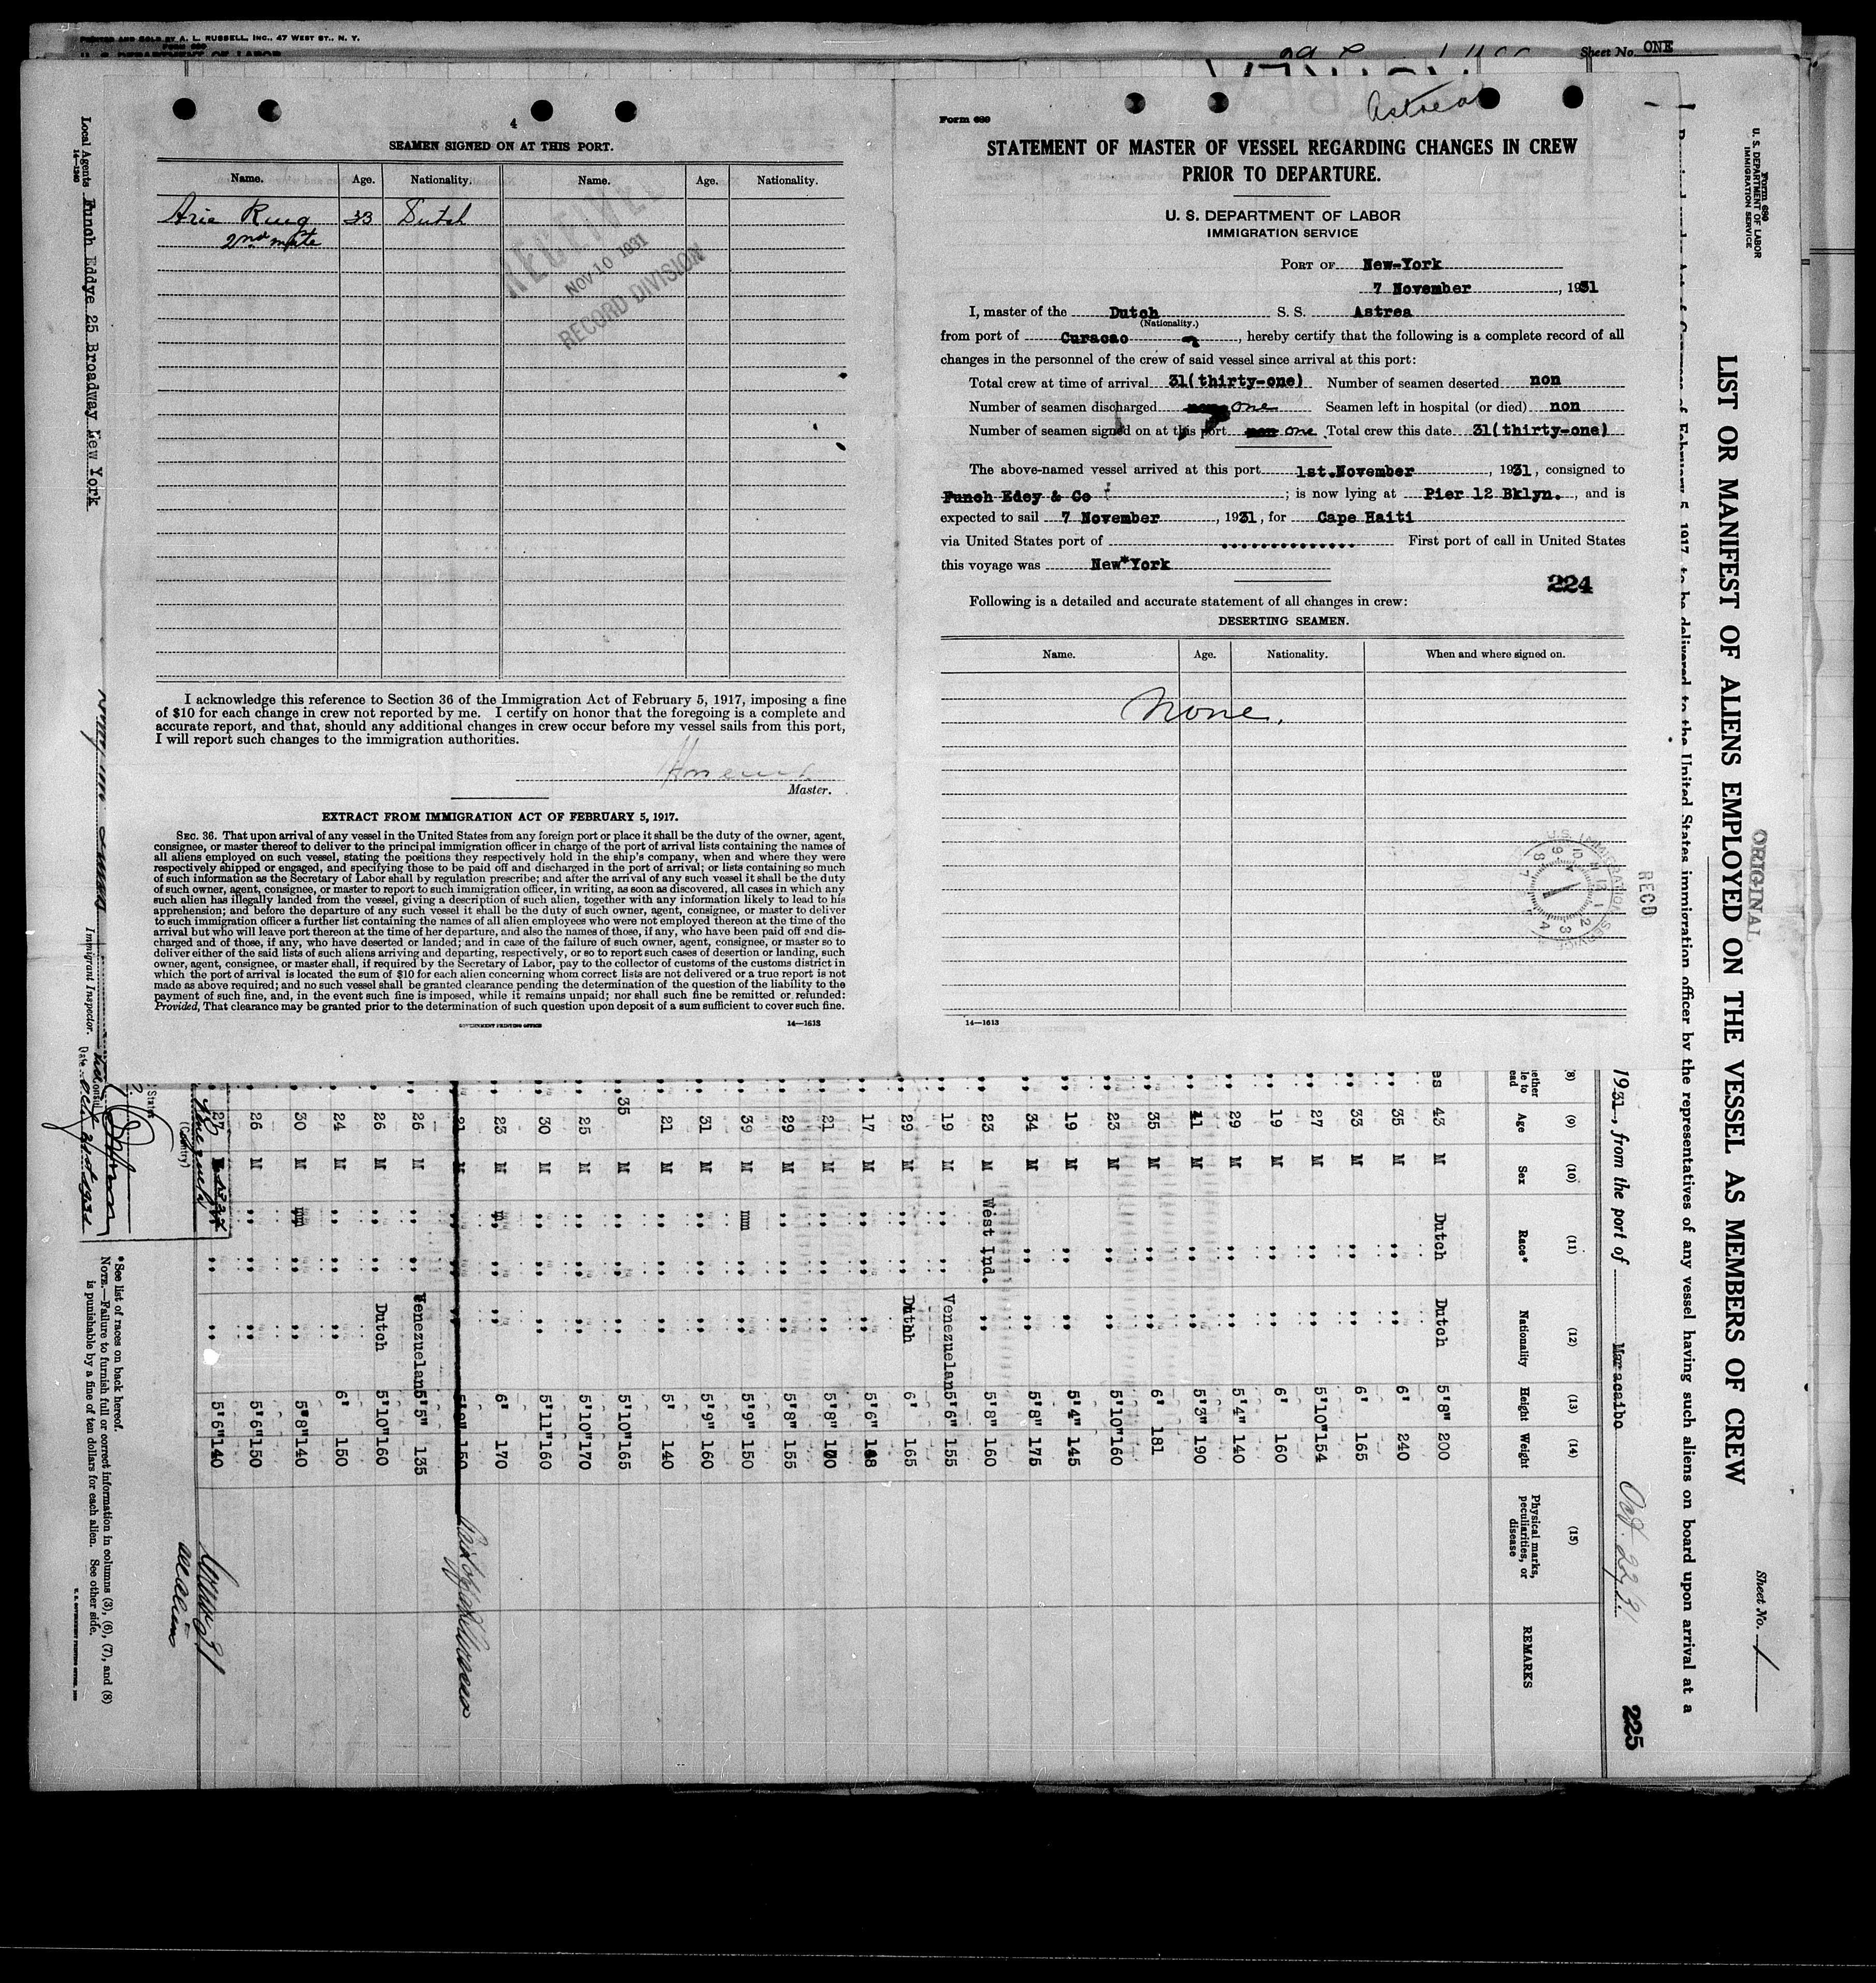 PRINTED AND SOLD BY A. L. RUSSELL, INC., 47 WEST ST., N. Y.
Form 689
U. S. DEPARTMENT OF LABOR
Sheet No. ONE
4
SEAMEN SIGNED ON AT THIS PORT.
Name. Age. Nationality. Name. Age. Nationality.
Arie 33 Dutch
2nd mate
RECEIVED
NOV 10 1931
RECORD DIVISION
I acknowledge this reference to Section 36 of the Immigration Act of February 5, 1917, imposing a fine
of $10 for each change in crew not reported by me. I certify on honor that the foregoing is a complete and
accurate report, and that, should any additional changes in crew occur before my vessel sails from this port,
I will report such changes to the immigration authorities.
Master.
EXTRACT FROM IMMIGRATION ACT OF FEBRUARY 5, 1917.
SEC. 36. That upon arrival of any vessel in the United States from any foreign port or place it shall be the duty of the owner, agent,
consignee, or master thereof to deliver to the principal immigration officer in charge of the port of arrival lists containing the names of
all aliens employed on such vessel, stating the positions they respectively hold in the ship's company, when and where they were
respectively shipped or engaged, and specifying those to be paid off and discharged in the port of arrival; or lists containing so much
of such information as the Secretary of Labor shall by regulation prescribe; and after the arrival of any such vessel it shall be the duty
of such owner, agent, consignee, or master to report to such immigration officer, in writing, as soon as discovered, all cases in which any
such alien has illegally landed from the vessel, giving a description of such alien, together with any information likely to lead to his
apprehension; and before the departure of any such vessel it shall be the duty of such owner, agent, consignee, or master to deliver
to such immigration officer a further list containing the names of all alien employees who were not employed thereon at the time of the
arrival but who will leave port thereon at the time of her departure, and also the names of those, if any, who have been paid off and dis-
charged and of those, if any, who have deserted or landed; and in case of the failure of such owner, agent, consignee, or master so to
deliver either of the said lists of such aliens arriving and departing, respectively, or so to report such cases of desertion or landing, such
owner, agent, consignee, or master shall, if required by the Secretary of Labor, pay to the collector of customs of the customs district in
which the port of arrival is located the sum of $10 for each alien concerning whom correct lists are not delivered or a true report is not
made as above required; and no such vessel shall be granted clearance pending the determination of the question of the liability to the
payment of such fine, and, in the event such fine is imposed, while it remains unpaid; nor shall such fine be remitted or refunded:
Provided, That clearance may be granted prior to the determination of such question upon deposit of a sum sufficient to cover such fine.
GOVERNMENT PRINTING OFFICE 14—1613
Astrea
Form 689
STATEMENT OF MASTER OF VESSEL REGARDING CHANGES IN CREW
PRIOR TO DEPARTURE.
U. S. DEPARTMENT OF LABOR
IMMIGRATION SERVICE
PORT OF New-York
7 November, 1931
I, master of the Dutch S. S. Astrea
(Nationality.)
from port of Curacao, hereby certify that the following is a complete record of all
changes in the personnel of the crew of said vessel since arrival at this port:
Total crew at time of arrival 31(thirty-one) Number of seamen deserted non
Number of seamen discharged one Seamen left in hospital (or died) non
Number of seamen signed on at this port one Total crew this date 31(thirty-one)
The above-named vessel arrived at this port 1st.November, 1931, consigned to
Funch Edey & Co; is now lying at Pier 12 Bklyn., and is
expected to sail 7 November, 1931, for Cape Haiti
via United States port of .............. First port of call in United States
this voyage was New*York
224
Following is a detailed and accurate statement of all changes in crew:
DESERTING SEAMEN.
Name. Age. Nationality. When and where signed on.
None.
14—1613
U.S. IMMIGRATION SERVICE
RECD
Form 689
U. S. DEPARTMENT OF LABOR
IMMIGRATION SERVICE
Sheet No. 1
ORIGINAL
LIST OR MANIFEST OF ALIENS EMPLOYED ON THE VESSEL AS MEMBERS OF CREW
February 5, 1917, to be delivered to the United States immigration officer by the representatives of any vessel having such aliens on board upon arrival at a
1931, from the port of Maracaibo Oct. 22/31.
225
(8) (9) (10) (11) (12) (13) (14) (15)
Age Sex Race* Nationality Height Weight Physical marks, peculiarities, or disease REMARKS
43 M Dutch Dutch 5'8" 200
35 M " " 6' 240
33 M " " 6' 165
27 M " " 5'10" 154
19 M " " 6' 160
29 M " " 5'4" 140
41 M " " 5'3" 190
35 M " " 6' 181
23 M " " 5'10" 160
19 M " " 5'4" 145
34 M " " 5'8" 175
23 M West Ind. " 5'8" 160
19 M " " Venezuelan 5'6" 155
29 M " " Dutch 6' 165
17 M " " " 5'6"
21 M " " " 5'8" 170
29 M " " " 5'8" 155
39 M " " " 5'9" 150
31 M " " " 5'9" 160
21 M " " " 5' 140
35 M " " " 5'10" 165
25 M " " " 5'10" 170
30 M " " " 5'11" 160
23 M " " " 6' 170
21 M " " " 150
26 M " " Venezuelan 5'5" 135
26 M " " Dutch 5'10" 160
24 M " " " 6' 150
30 M " " " 5'8" 140
26 M " " " 5'6" 150
27 " " " 5'6" 140
(Country)
*See list of races on back hereof.
NOTE.—Failure to furnish full or correct information in columns (3), (6), (7), and (8)
is punishable by a fine of ten dollars for each alien. See other side.
Immigrant Inspector.
Local Agents Funch Eddye 25 Broadway New York
14—1240